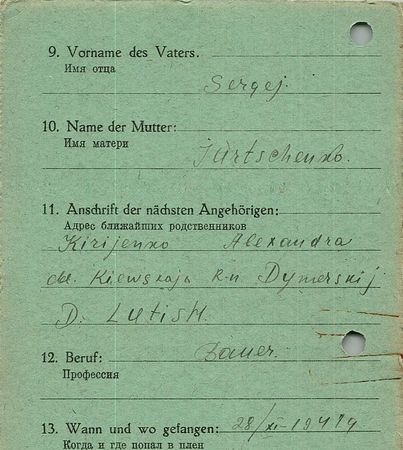 9. Vorname des Vaters.
Имя отца
Sergej.
10. Name der Mutter:
Имя матери
Jurtschenko.
11. Anschrift der nächsten Angehörigen:
Адрес ближайших родственников
Kirijenko Alexandra
obl. Kiewskaja R-n Dymerskij
D. Lutish.
12. Beruf: Bauer.
Профессия
13. Wann und wo gefangen: 28/XI-1941
Когда и где попал в плен